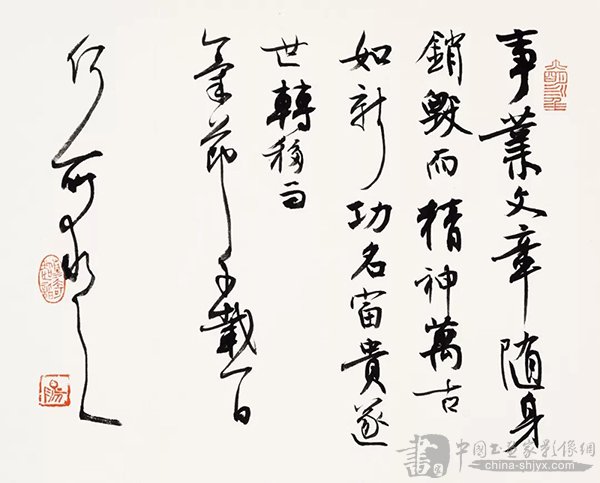 事業文章随身
銷毀而精神萬古
如新功名富貴遂
世轉移而
氣節千載一日
書
中国书画家影像網
china-shjyx.com